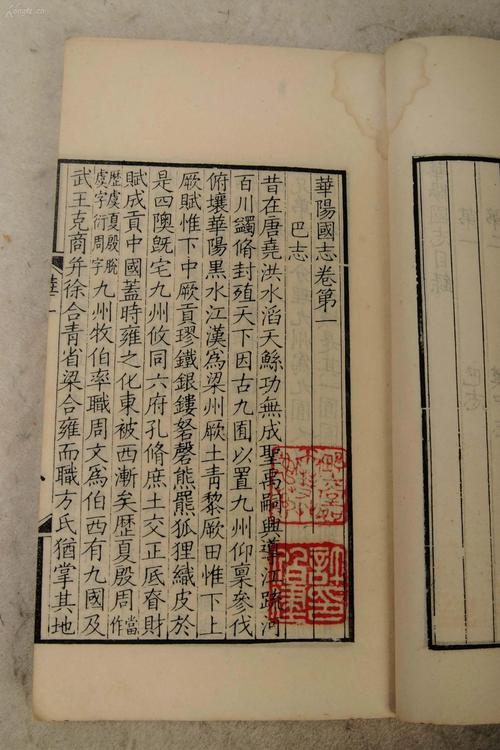 華陽國志卷第一
巴志
昔在唐堯洪水滔天鯀功無成聖禹嗣興導江疏河
百川蠲脩封殖天下因古九囿以置九州仰稟參伐
俯壤華陽黑水江漢爲梁州厥土青黎厥田惟下上
厥賦惟下中厥貢璆鐵銀鏤砮磬熊羆狐狸織皮於
是四隩旣宅九州攸同六府孔脩庶土交正厎眘財
賦成貢中國蓋時雍之化東被西漸矣歴夏殷周當作
歴虞夏殷脫虞字衍周字九州牧伯率職周文爲伯西有九國及
武王克商并徐合青省梁合雍而職方氏猶掌其地